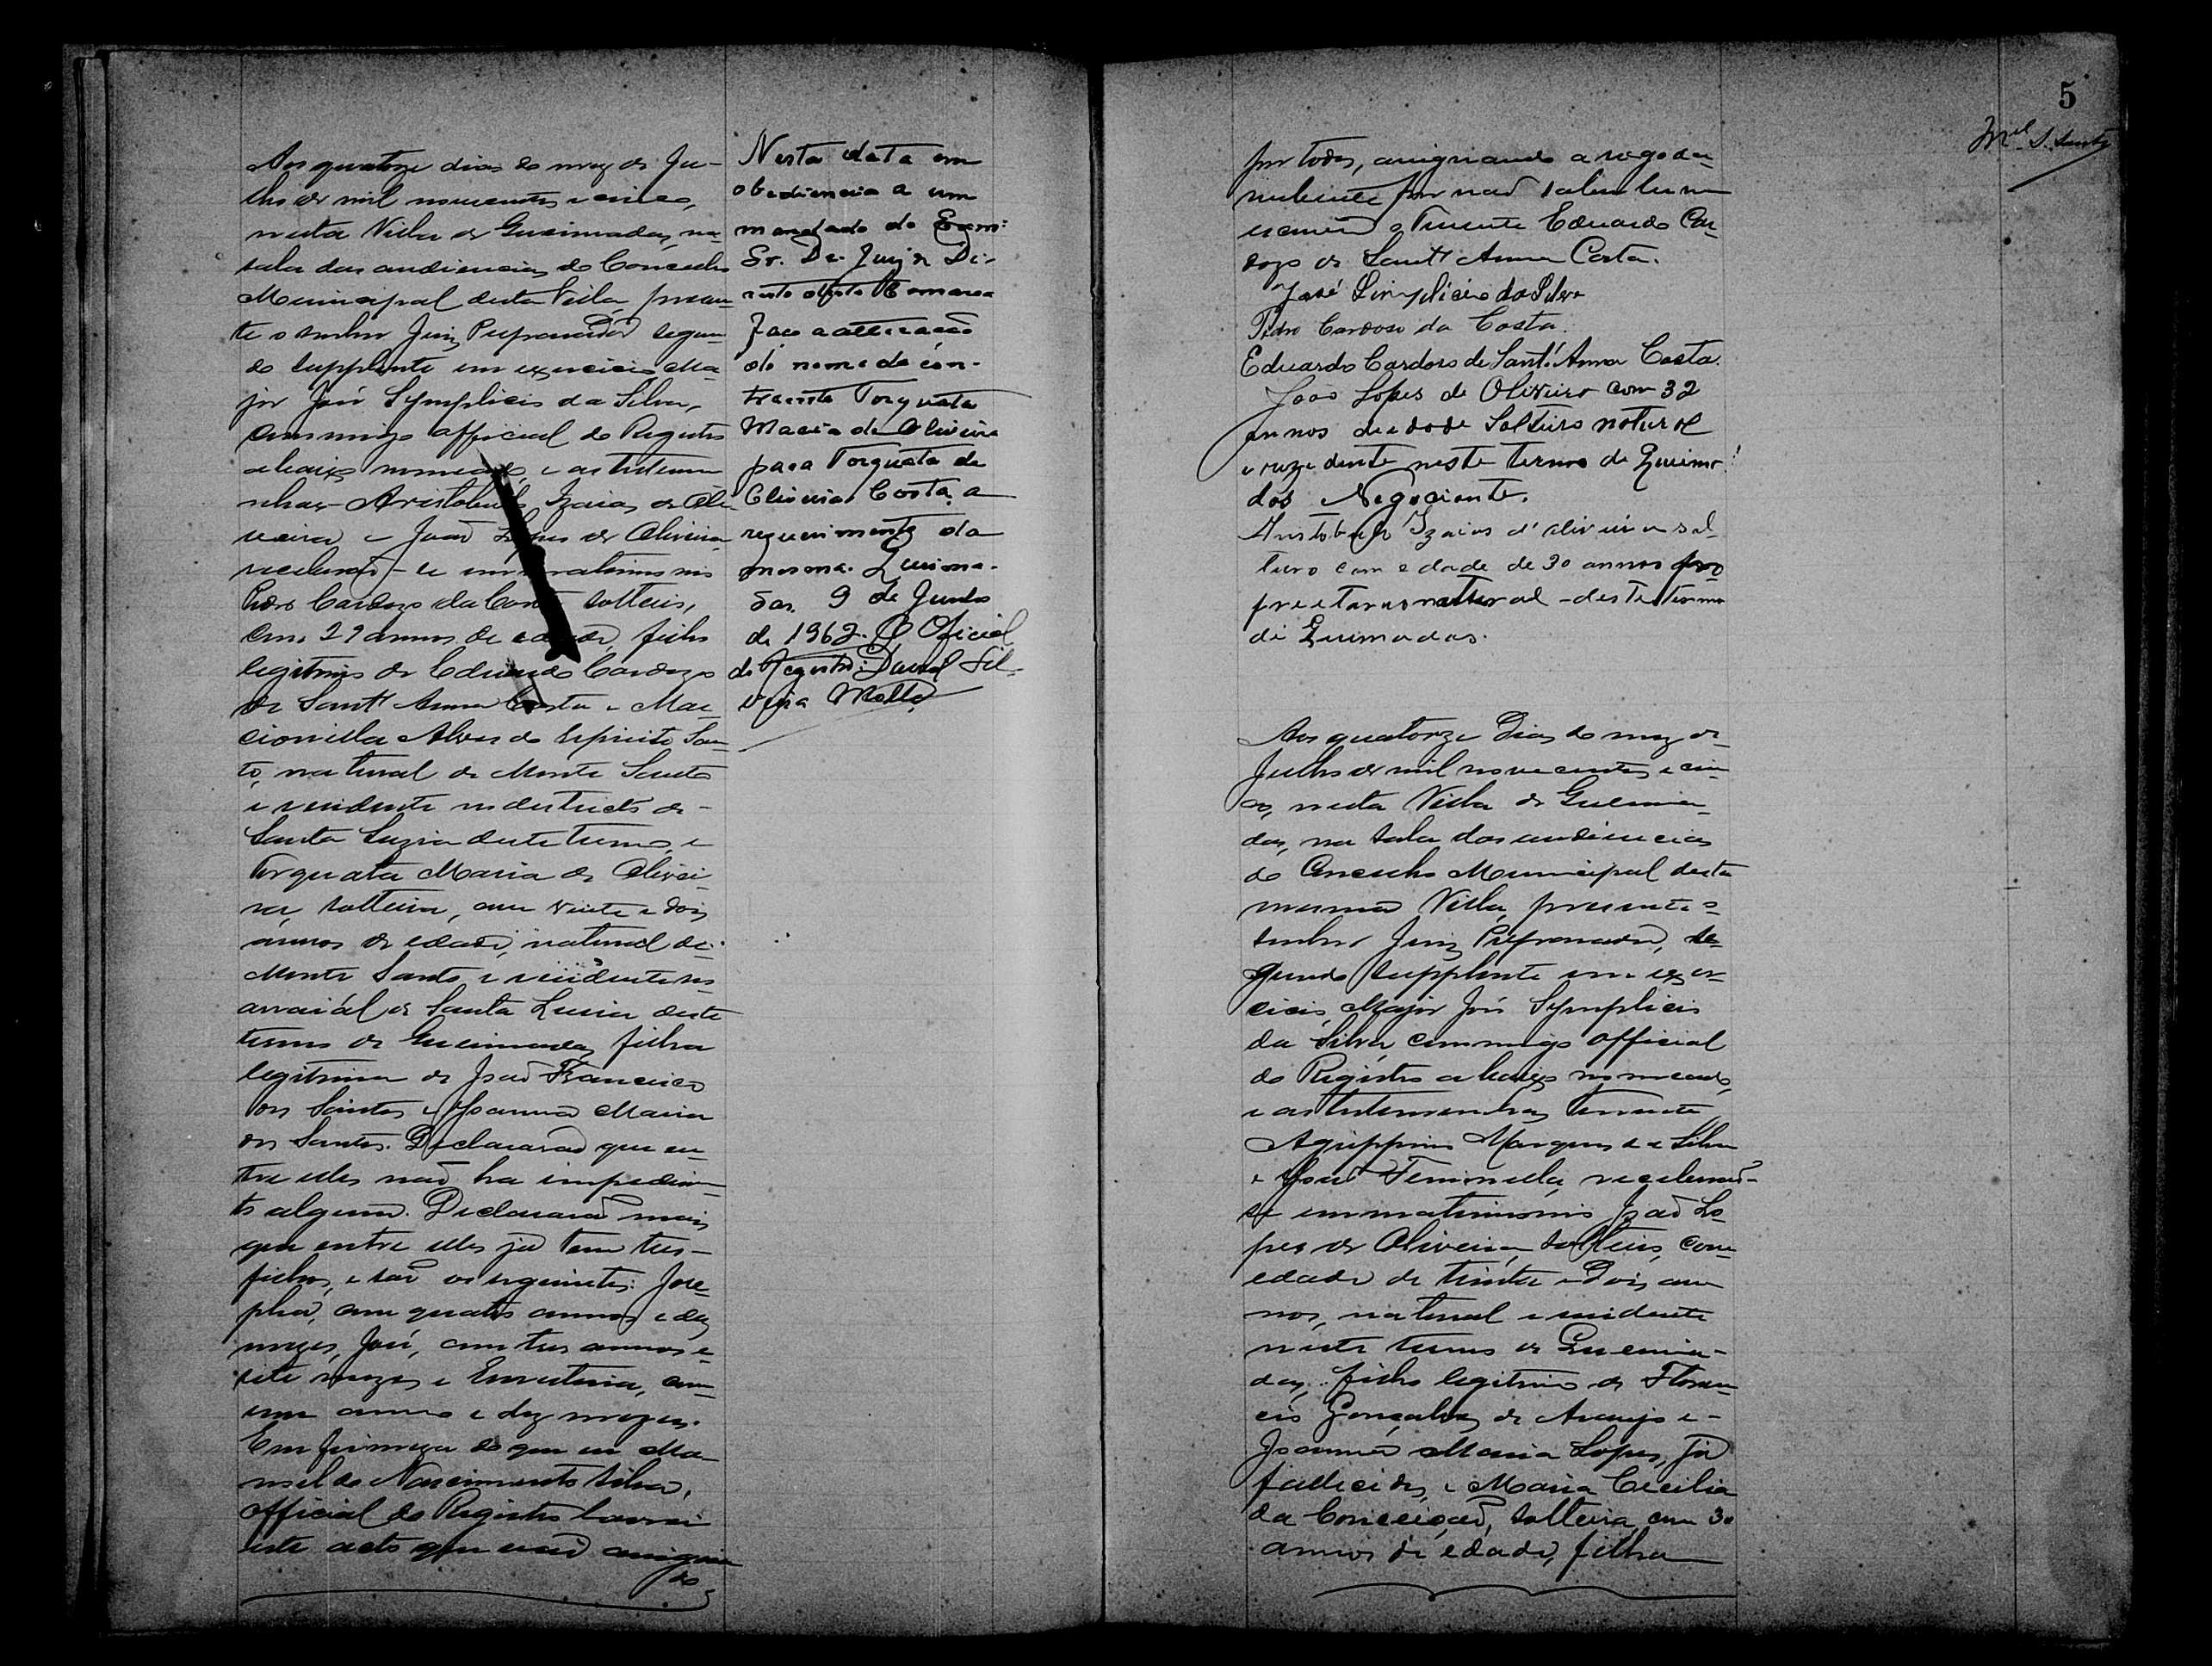 Aos quatorze dias do mez de Ju-
lho de mil novecentos e cinco,
nesta Villa de Queimadas, na
sala das audiencias do Conselho
Municipal desta Villa, presen-
te o senhor Juiz Preparador segun-
do supplente em exercicio Ma-
jor José Symplicio da Silva,
commigo official do Registro
abaixo nomeado, e as testemu-
nhas Aristobulo Izaias de Oli-
veira e João Lopes de Oliveira
receberão-se em matrimonio
Pedro Cardozo da Costa solteiro,
com 29 annos de edade, filho
legitimo de Eduardo Cardozo
de Sant' Anna Costa e Mar-
cionilla Alves do Espirito San-
to, natural de Monte Santo
e residente no districto de
Santa Luzia deste termo, e
Torquata Maria de Olivei-
ra, solteira, com vinte e dois
annos de edade, natural de
Monte Santo e residente no
arraiál de Santa Lusia deste
termo de Queimadas, filha
legitima de João Francisco
dos Santos e Joanna Maria
dos Santos. Declararão que en-
tre elles não ha impedimen-
to algum. Declararão mais
que entre elles já tem tres
filhos, e são os seguintes: Jose-
pha, com quatro annos e dez
mezes, José, com tres annos e
sete mezes e com
um anno e dez mezes.
Em firmeza do que eu Ma-
noel do Nascimento Silva,
official do Registro lavrei
este acto que vai assigna
do
Nesta data em
obediencia a um
mandado do Exmº
Sr. Dr. Juiz de Di-
reito desta Comarca
faço a alteração
do nome da con-
traente Torquata
Maria de Oliveira
para Torquata de
Oliveira Costa, a
requerimento da
mesma. Queima-
das, 9 de Junho
de 1962. O Oficial
do Registro: Durval Sil-
veira Motta
5
Mel S. Santos
por todos, assignando a rogo da
nubente por não saber ler nem
escrever o Tenente Eduardo Car-
dozo de Sant' Anna Costa.
José Simplicio da Silva
Pedro Cardoso da Costa.
Eduardo Cardoso de Sant'Anna Costa.
João Lopes de Oliveira com 32
annos de edade Solteiro natural
e rezidente neste termo de Queima-
das Negociante.
Aristobulo Izaias d'Oliveira sol-
teiro com edade de 30 annos pro
prietario natural deste termo
de Queimadas.
Aos quatorze Dias do mez de
Julho de mil novecentos e cin-
co, nesta Villa de Queima-
das, na sala das audiencias
do Conselho Municipal desta
mesma Villa, presente o
senhor Juiz Preparador, se-
gundo supplente em exer-
cicio, Major José Symplicio
da Silva, commigo official
do Registro abaixo nomeado,
e as testemunhas tenente
Agrippino Marques da Silva
e José receberão-
se em matrimonio João Lo-
pes de Oliveira, solteiro, com
edade de trinta e dois an-
nos, natural e residente
neste termo de Queima-
das, filho legitimo de Floren-
cio Gonçalves de Araujo e
Joanna Maria Lopes, já
fallecidos, e Maria Cecilia
da Conceição, solteira, com 30
annos de edade, filha